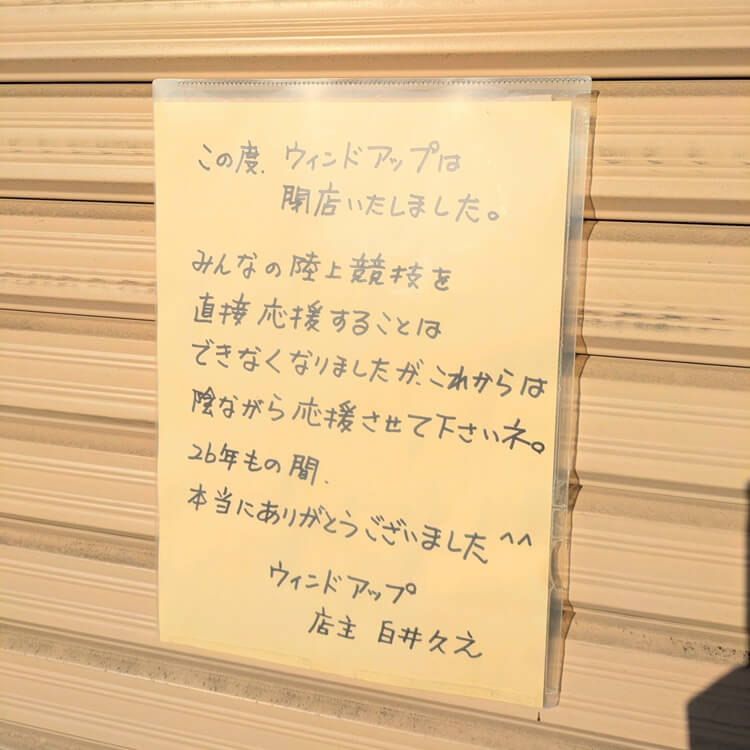 この度、ウィンドアップは
閉店いたしました。
みんなの陸上競技を
直接応援することは
できなくなりましたが、これからは
陰ながら応援させて下さいネ。
26年もの間、
本当にありがとうございました^^
ウィンドアップ
店主 白井久え